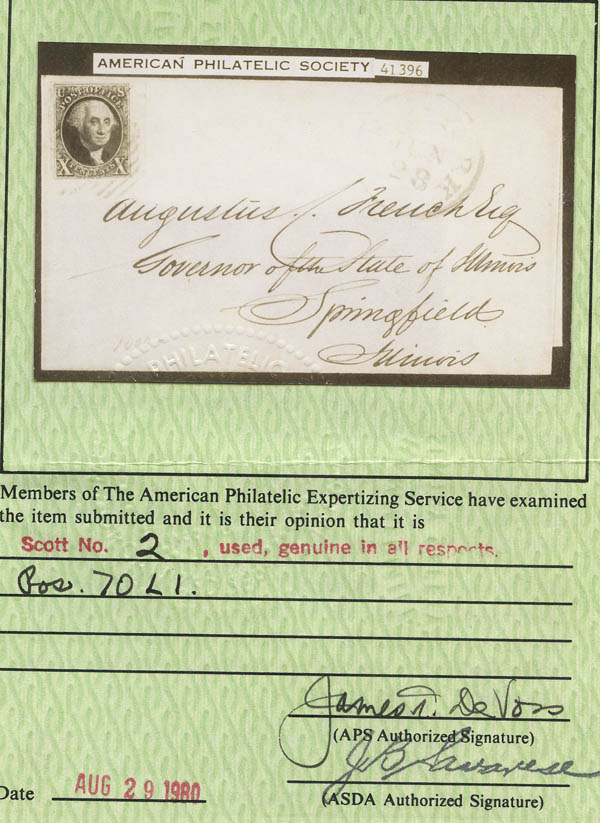 AMERICAN PHILATELIC SOCIETY 41396
U S
POST OFFICE
X TEN CENTS X
Augustus C. French Esq
Governor of the State of Illinois
Springfield
Illinois
PHILATELIC
Members of The American Philatelic Expertizing Service have examined
the item submitted and it is their opinion that it is
Scott No. 2 , used, genuine in all respects.
Pos. 70 L 1.
James T. DeVoss
(APS Authorized Signature)
J B Savarese
(ASDA Authorized Signature)
Date AUG 29 1980